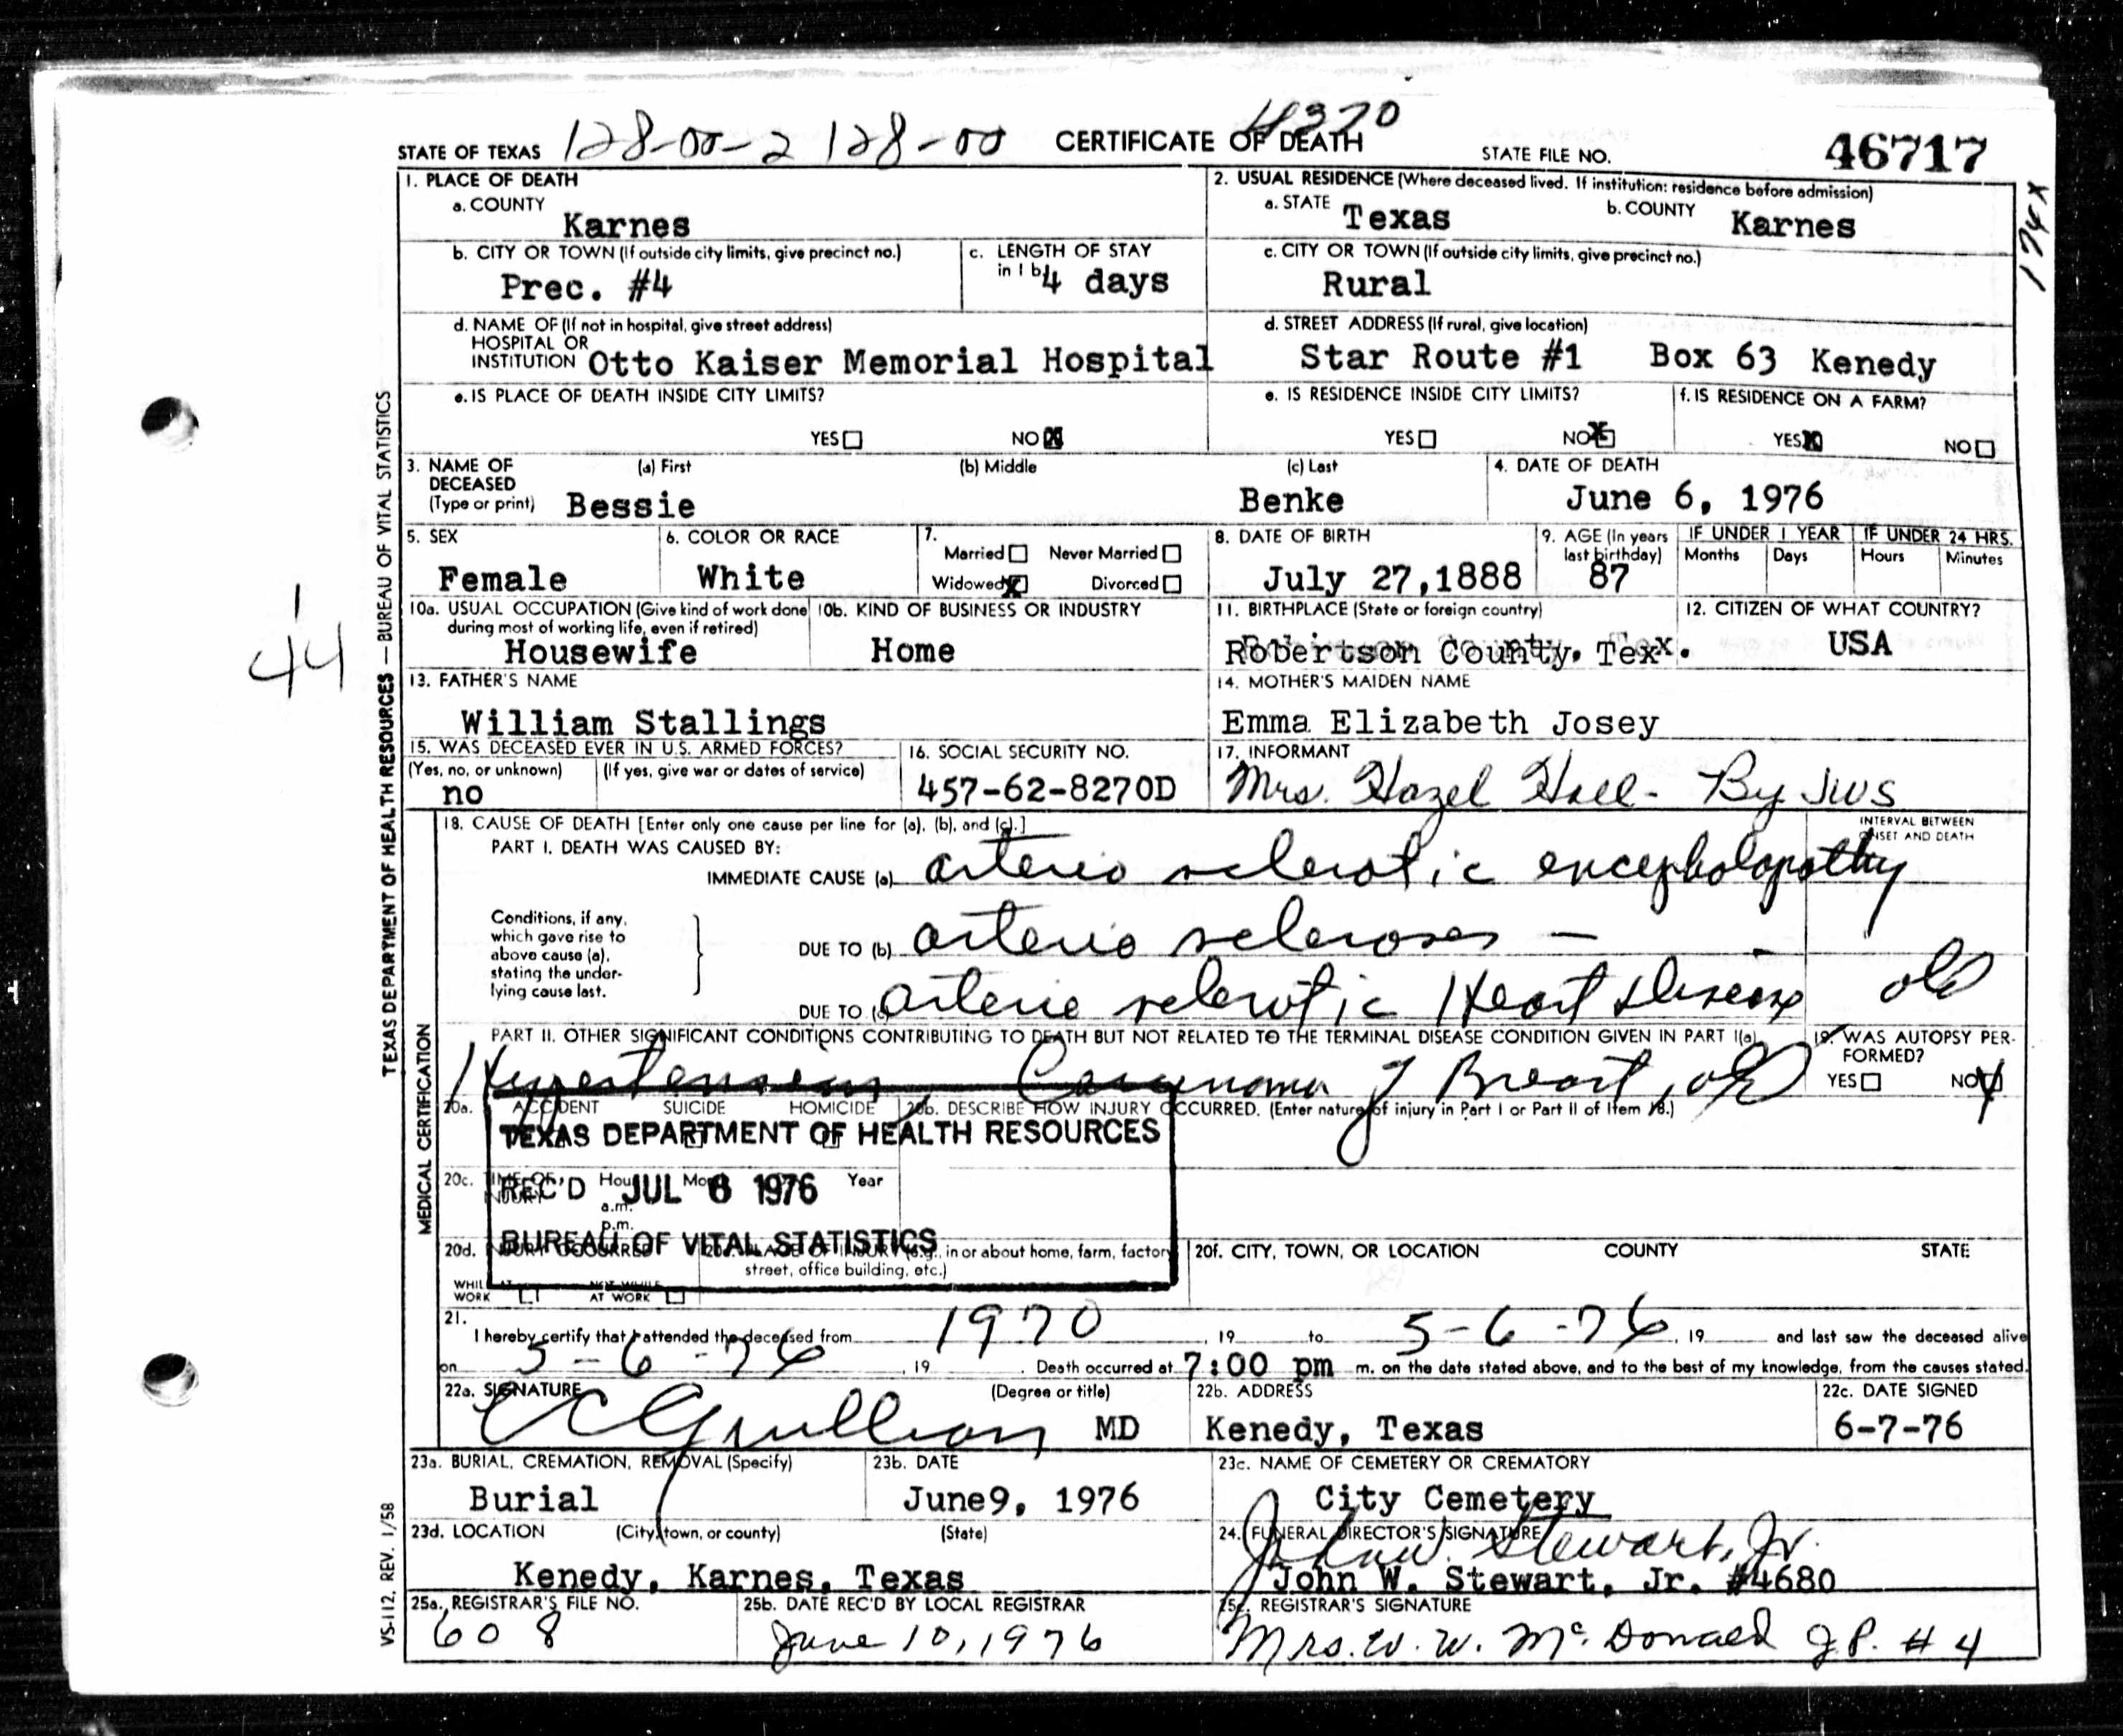 STATE OF TEXAS 128-00-2 128-00 CERTIFICATE OF DEATH 4370 STATE FILE NO. 46717
174X
1. PLACE OF DEATH
a. COUNTY
Karnes
2. USUAL RESIDENCE (Where deceased lived. If institution: residence before admission)
a. STATE Texas b. COUNTY Karnes
b. CITY OR TOWN (If outside city limits, give precinct no.)
Prec. #4
c. LENGTH OF STAY
in 1 b 4 days
c. CITY OR TOWN (If outside city limits, give precinct no.)
Rural
d. NAME OF (If not in hospital, give street address)
HOSPITAL OR
INSTITUTION Otto Kaiser Memorial Hospital
d. STREET ADDRESS (If rural, give location)
Star Route #1 Box 63 Kenedy
e. IS PLACE OF DEATH INSIDE CITY LIMITS?
YES NO X
e. IS RESIDENCE INSIDE CITY LIMITS?
YES NO X
f. IS RESIDENCE ON A FARM?
YES X NO
3. NAME OF DECEASED
(Type or print)
(a) First (b) Middle (c) Last
Bessie Benke
4. DATE OF DEATH
June 6, 1976
5. SEX
Female
6. COLOR OR RACE
White
7.
Married Never Married
Widowed X Divorced
8. DATE OF BIRTH
July 27,1888
9. AGE (In years
last birthday)
87
IF UNDER 1 YEAR IF UNDER 24 HRS.
Months Days Hours Minutes
10a. USUAL OCCUPATION (Give kind of work done
during most of working life, even if retired)
Housewife
10b. KIND OF BUSINESS OR INDUSTRY
Home
11. BIRTHPLACE (State or foreign country)
Robertson County, Tex.
12. CITIZEN OF WHAT COUNTRY?
USA
13. FATHER'S NAME
William Stallings
14. MOTHER'S MAIDEN NAME
Emma Elizabeth Josey
15. WAS DECEASED EVER IN U.S. ARMED FORCES?
(Yes, no, or unknown) (If yes, give war or dates of service)
no
16. SOCIAL SECURITY NO.
457-62-8270D
17. INFORMANT
Mrs. Hazel Hall - By JWS
18. CAUSE OF DEATH [Enter only one cause per line for (a), (b), and (c).]
INTERVAL BETWEEN
ONSET AND DEATH
PART I. DEATH WAS CAUSED BY:
IMMEDIATE CAUSE (a) arterio sclerotic encephalopathy
Conditions, if any,
which gave rise to
above cause (a),
stating the under-
lying cause last.
DUE TO (b) arterio scleroses -
DUE TO (c) arterio sclerotic Heart Disease old
PART II. OTHER SIGNIFICANT CONDITIONS CONTRIBUTING TO DEATH BUT NOT RELATED TO THE TERMINAL DISEASE CONDITION GIVEN IN PART I(a)
Hypertension, Carcinoma of Breast, old
19. WAS AUTOPSY PER-
FORMED?
YES NO
20a. ACCIDENT SUICIDE HOMICIDE
20b. DESCRIBE HOW INJURY OCCURRED. (Enter nature of injury in Part I or Part II of Item 18.)
TEXAS DEPARTMENT OF HEALTH RESOURCES
REC'D JUL 6 1976
BUREAU OF VITAL STATISTICS
20c. TIME OF INJURY Hour Month Year
a.m.
p.m.
20d. INJURY OCCURRED
WHILE AT WORK NOT WHILE AT WORK
20e. PLACE OF INJURY (e.g., in or about home, farm, factory
street, office building, etc.)
20f. CITY, TOWN, OR LOCATION COUNTY STATE
21.
I hereby certify that I attended the deceased from 1970, 19 to 5-6-76, 19 and last saw the deceased alive
on 5-6-76, 19 . Death occurred at 7:00 pm m. on the date stated above, and to the best of my knowledge, from the causes stated.
22a. SIGNATURE (Degree or title)
MD
22b. ADDRESS
Kenedy, Texas
22c. DATE SIGNED
6-7-76
23a. BURIAL, CREMATION, REMOVAL (Specify)
Burial
23b. DATE
June9, 1976
23c. NAME OF CEMETERY OR CREMATORY
City Cemetery
23d. LOCATION (City, town, or county) (State)
Kenedy, Karnes, Texas
24. FUNERAL DIRECTOR'S SIGNATURE
John W. Stewart, Jr.
John W. Stewart, Jr. #4680
25a. REGISTRAR'S FILE NO.
608
25b. DATE REC'D BY LOCAL REGISTRAR
June 10, 1976
25c. REGISTRAR'S SIGNATURE
Mrs. W. W. McDonald J.P. #4
TEXAS DEPARTMENT OF HEALTH RESOURCES — BUREAU OF VITAL STATISTICS
MEDICAL CERTIFICATION
VS-112, REV. 1/58
1
44